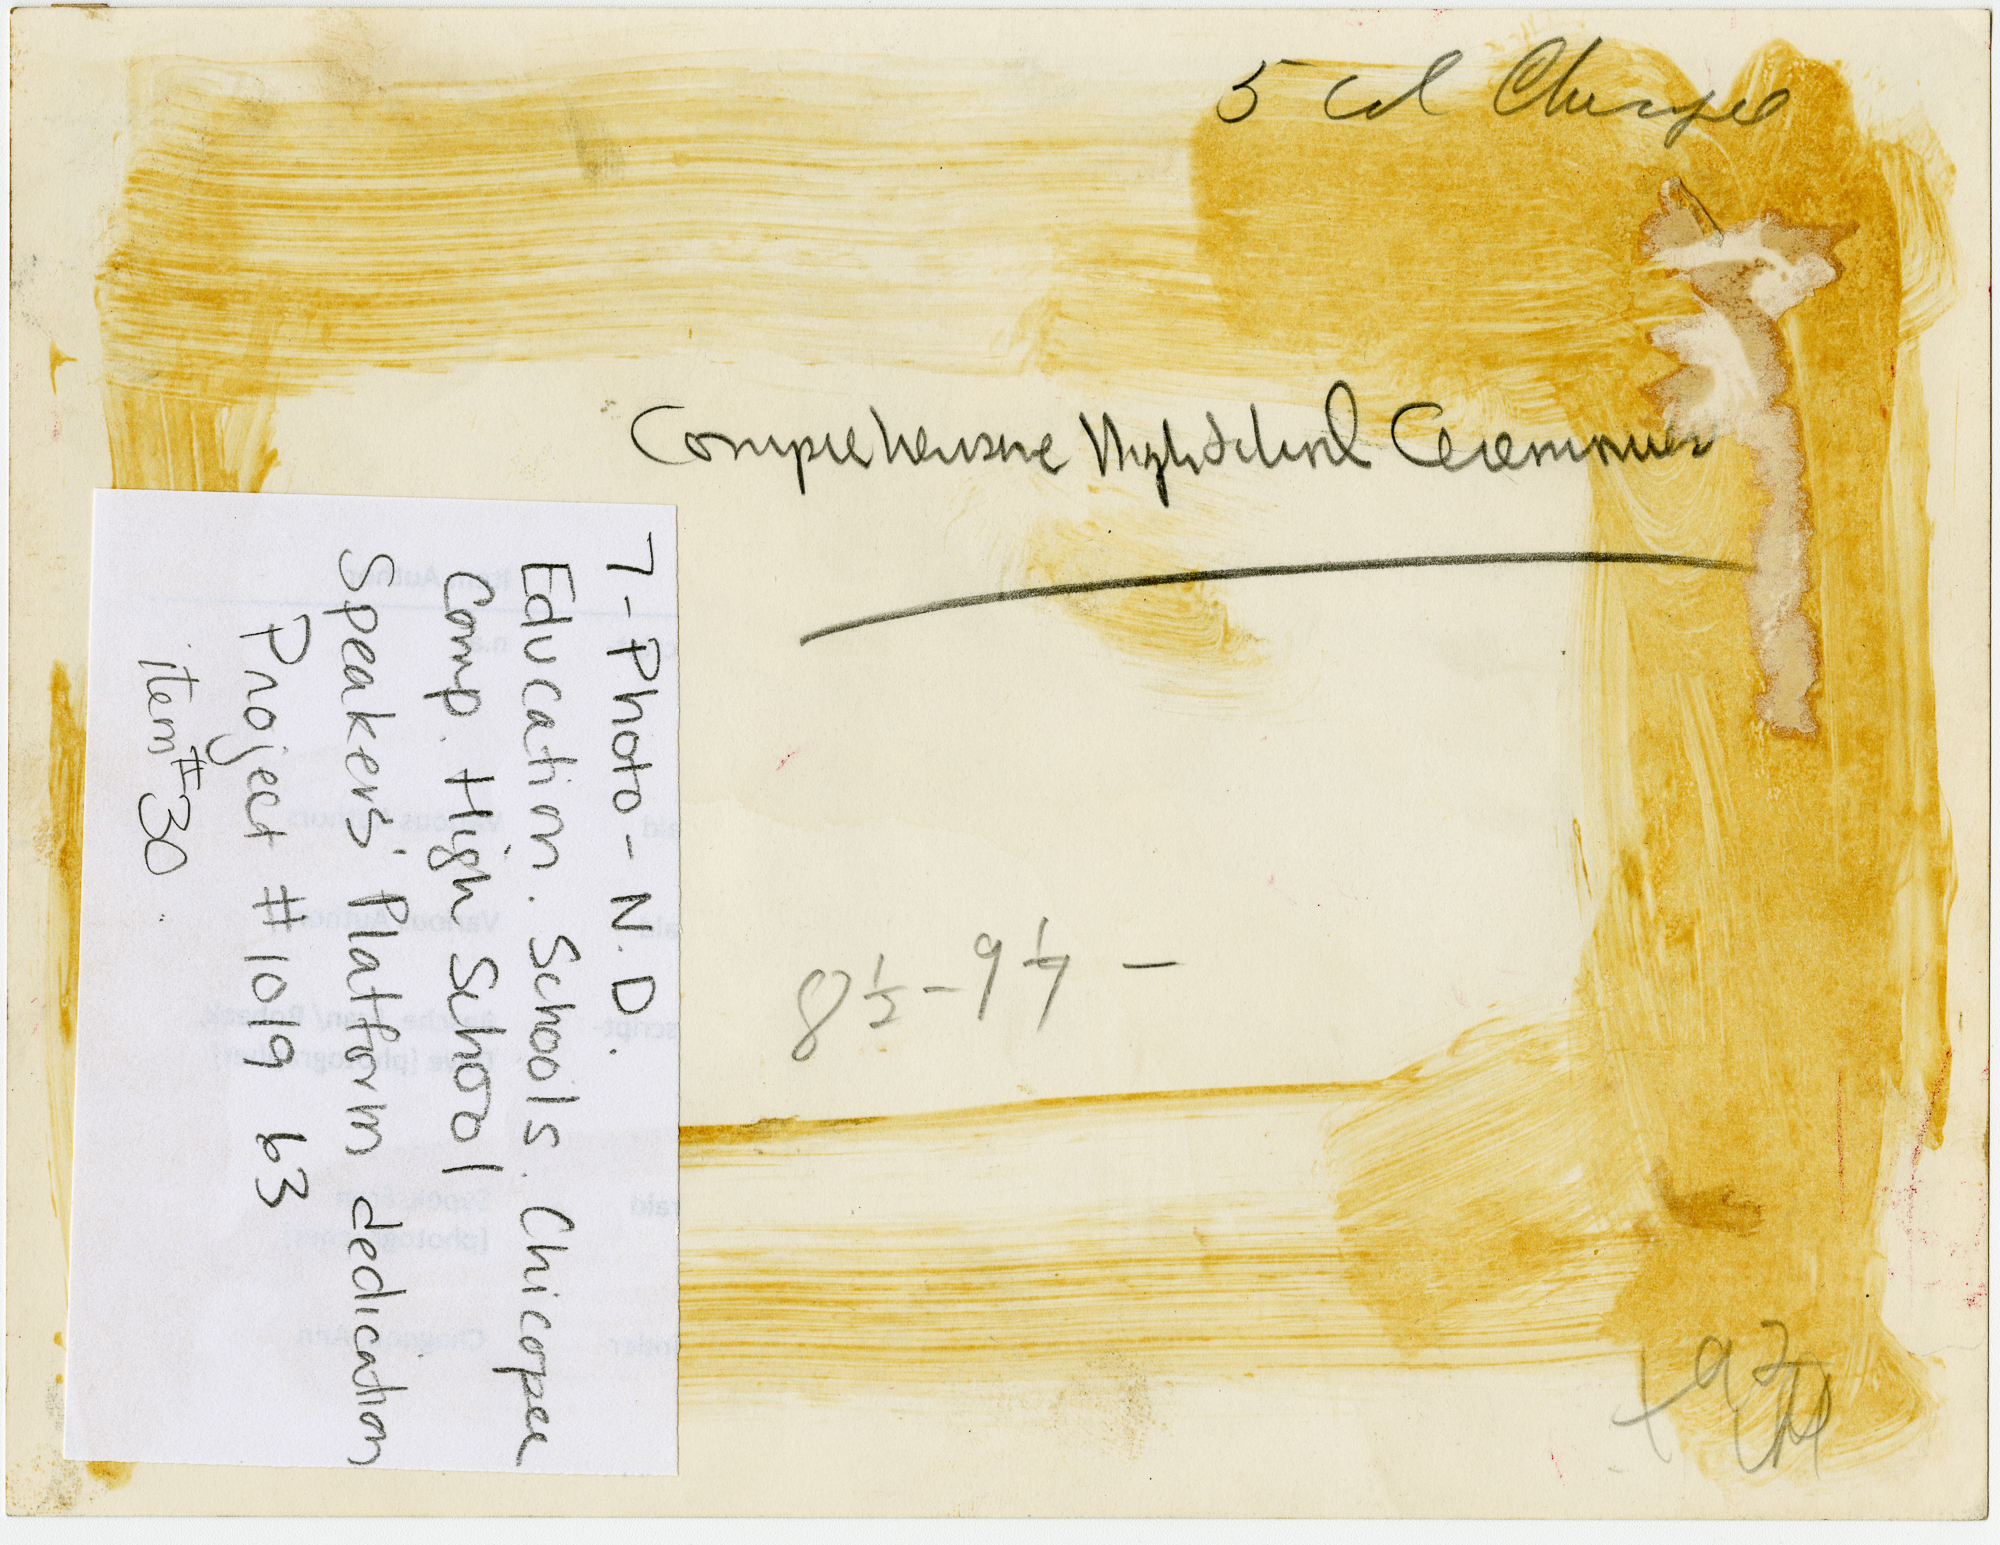 5 col Chicopee
Comprehensive High School Ceremonies
8 1/2 - 9 1/4 -
7-Photo-N.D.
Education. Schools. Chicopee
Comp. High School
Speakers' Platform dedication
Project # 1019 63
item #30